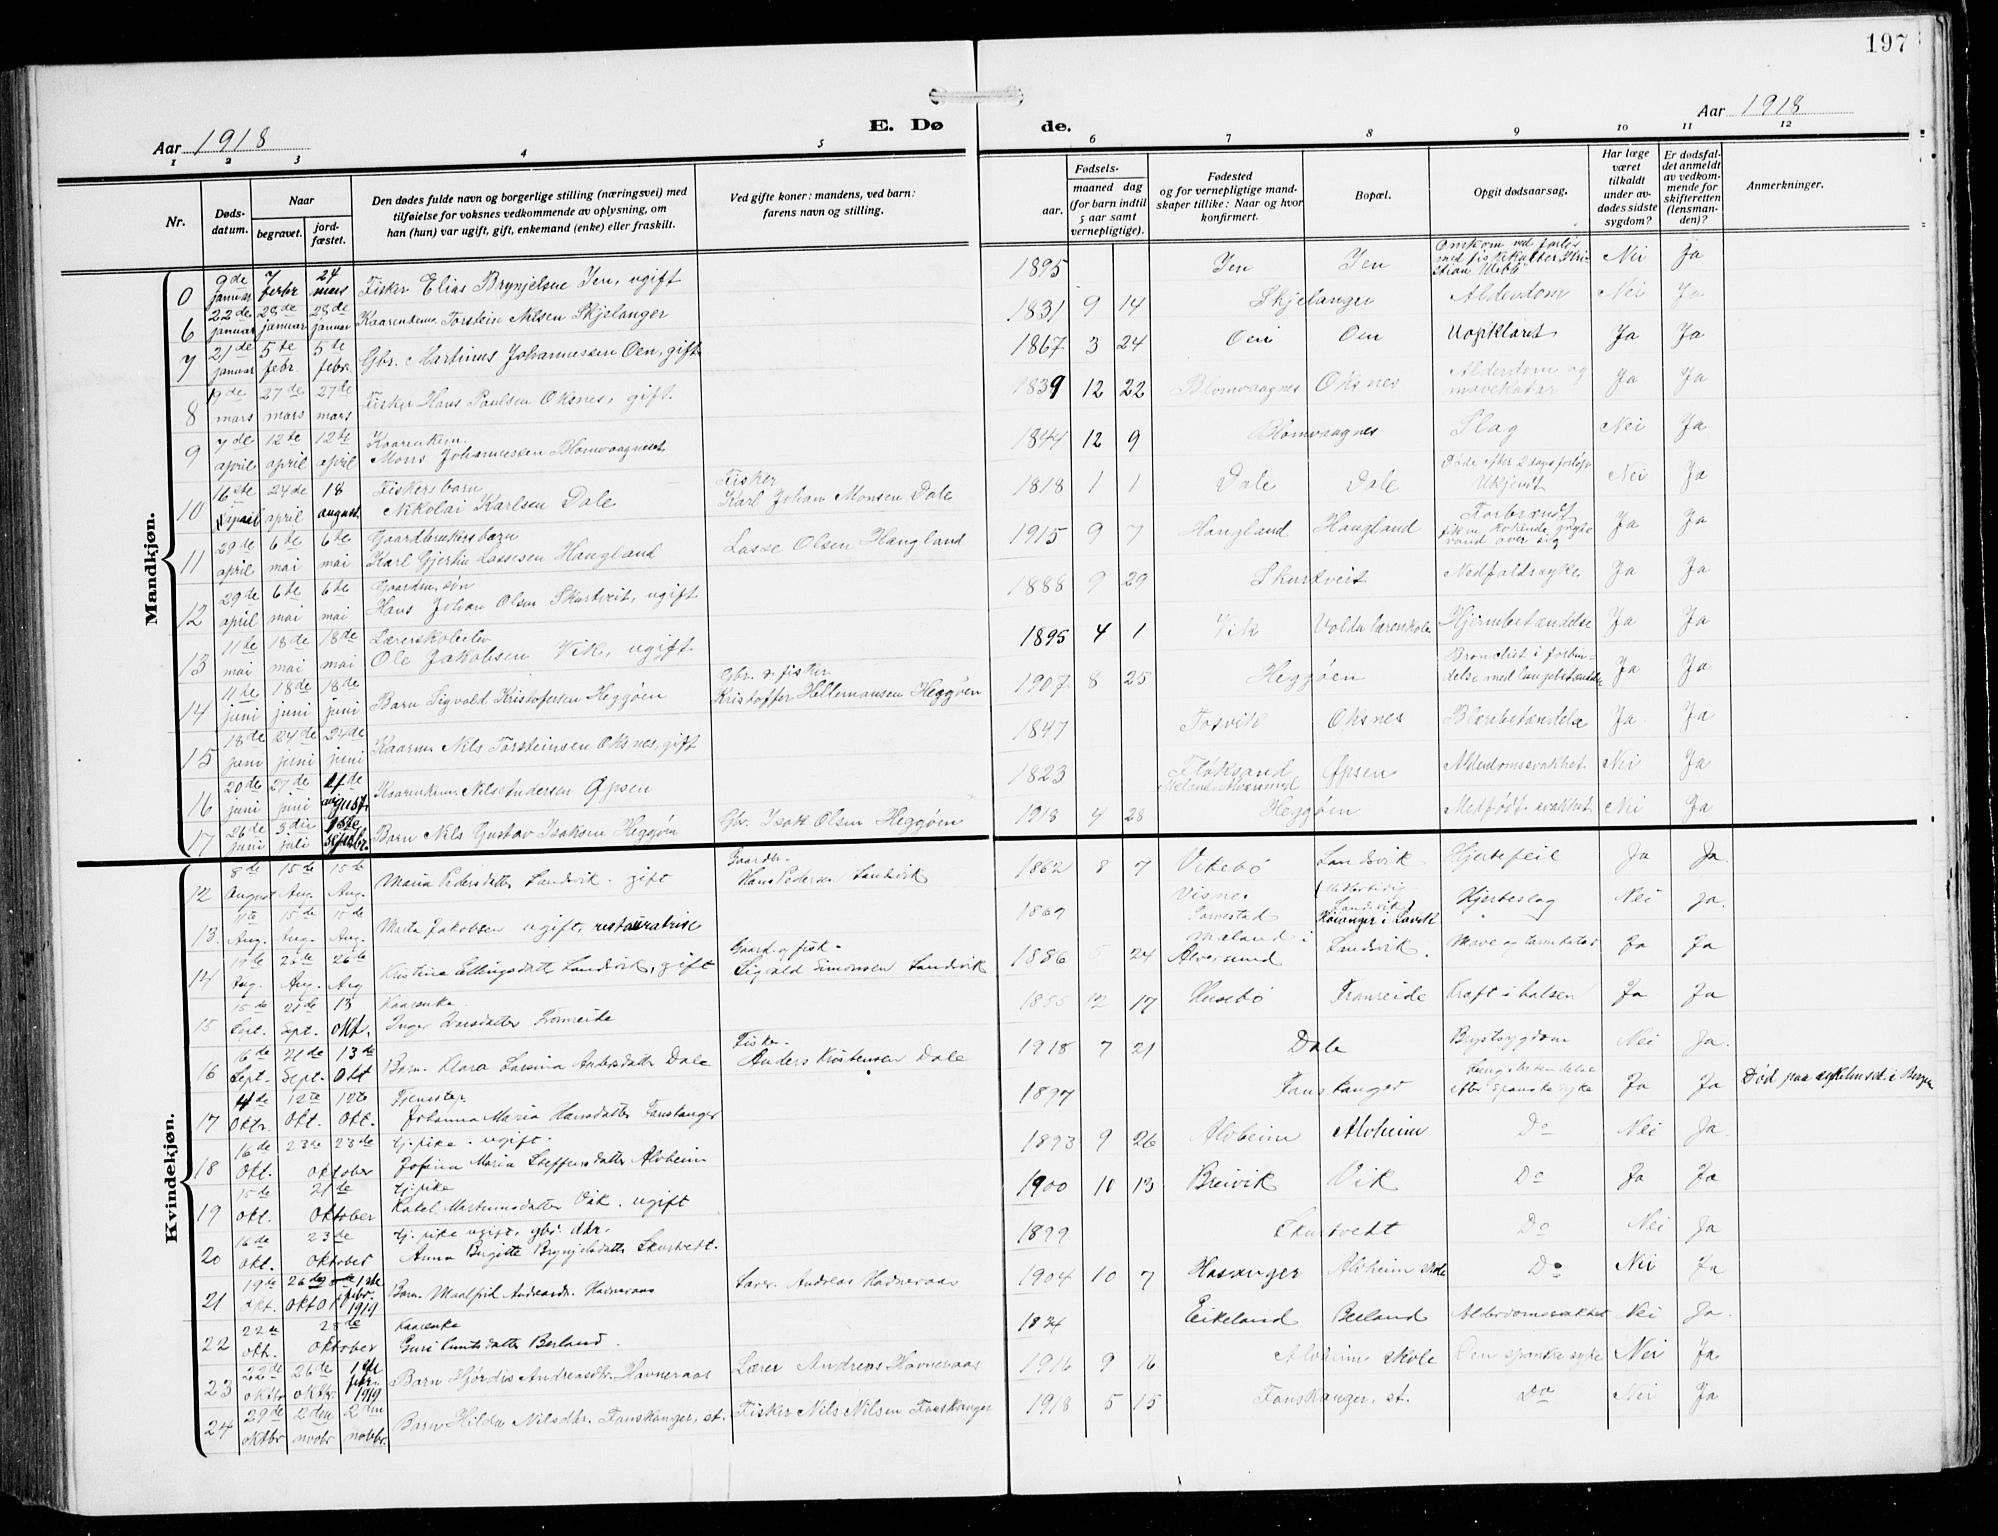 197
Aar 1918
E. Dø de.
Aar 1918
1 2 3 4 5 6 7 8 9 10 11 12
Nr.
Døds-datum.
Naar
begravet.
jord-fæstet.
Den dødes fulde navn og borgerlige stilling (næringsvei) med
tilføielse for voksnes vedkommende av oplysning, om
han (hun) var ugift, gift, enkemand (enke) eller fraskilt.
Ved gifte koner: mandens, ved barn:
farens navn og stilling.
Fødsels-
aar.
maaned dag
(for barn indtil
5 aar samt
vernepligtige).
Fødested
og for vernepligtige mand-
skaper tillike: Naar og hvor
konfirmert.
Bopæl.
Opgit dødsaarsag.
Har læge
været
tilkaldt
under av-
dødes sidste
sygdom?
Er dødsfal-
det anmeldt
av vedkom-
mende for
skifteretten
(lensman-
den)?
Anmerkninger.
Mandkjøn.
0 9de januar 7 febr 24 mars Fisker Elias Brynjelsen Ien, ugift 1895 Ien Ien Omkom ved forlis med fiskekutter Nei Ja
6 22de januar 28de januar 28de januar Kaarenkem. Torstein Nilsen Skjelanger 1831 9 14 Skjelanger Alderdom Nei Ja
7 21de januar 5te febr. 5te febr. Gbr. Martinus Johannessen Oen, gift 1867 3 24 Oen Oen Uopklaret Ja Ja
8 mars 27de mars 27de mars Fisker Hans Paulsen Oksnes, gift. 1839 12 22 Blomvaagnes Oksnes Alderdom og mavekatar Ja Ja
9 7de april 12te april 12te april Kaarenkem. Mons Johannessen Blomvaagneset 1844 12 9 Blomvaagnes Slag Nei Ja
10 16ste april 24de april 18 august. Fiskers barn Nikolai Karlsen Dale Fisker Karl Johan Monsen Dale 1818 1 1 Dale Dale Døde efter 2 dages forløp Ukjendt Nei Ja
11 29de april 6te mai 6te mai Gaardbrukersbarn Karl Gjertin Lassesen Haugland Lasse Olsen Haugland 1915 9 7 Haugland Haugland Forbrændt fik kokende vand over sig Ja Ja
12 29de april 6te mai 6te mai Gaardm. søn Hans Johan Olsen Skurtveit, ugift 1888 9 29 Skurtveit Nedfaldssyke Ja Ja
13 11te mai 18de mai 18de mai Lærerskoleelev Ole Jakobsen Vik, ugift 1895 4 1 Vik Volda lærerskole Hjernebetændelse Ja Ja
14 11te juni 18de juni 18de juni Barn Sigvald Kristofersen Heggøen Gbr. & fisker Kristoffer Hillemansen Heggøen 1907 8 25 Heggøen Bronchit i forbin- delse med lungebetændelse Ja Ja
15 18de juni 24de juni 24de juni Kaarm. Nils Torsteinsen Oksnes, gift 1847 Tosvik Oksnes Blærebetændelse Ja Ja
16 20de juni 27de juni 4de august. Kaarenkem. Nils Andersen Øpsen 1823 Floksand Øpsen Alderdomssvakhet Nei Ja
17 26de juni 3die juli Septbr. Barn Nils Gustav Isaksen Heggøen Gbr. Isak Olsen Heggøen 1918 4 28 Heggøen Medfødt svakhet Nei Ja
Kvindekjøn.
12 8de August 15de Aug. 15de Aug. Maria Pedersdatter Landvik. gift Gaardbr. Hans Pedersen Landvik 1862 8 7 Vikebø Landvik Hjertefeil Ja Ja.
13. 11te Aug. 15de Aug. 15de Aug. Marta Jakobsen ugift, restauratrise 1869 Visnes Landvik Hjerteslag Nei Ja.
14 19te Aug. 26te Aug. 26te Aug Kristine Ellingsdatt. Landvik, gift Gaard. og fisk. Sigvald Simonsen Landvik 1886 5 24 Mæland i Alversund Landvik. Mave og tarmkatar Ja Ja
15 15de Sept. 21de Sept. 13 Okt. Kaarenke. Inger Larsdatter Fromreide 1855 12 17 Husebø Fromreide Kræft i halsen Ja Ja
16 16de Sept. 21de Sept. 13de Okt Barn. Klara Larsina Andersdatt. Dale Fisker. Anders Kristensen Dale 1918 7 21 Dale Brystsygdom Nei Ja.
17 4de Oktr. 12te Okt. 12te Okt. Tjenestep. Johanna Maria Hansdatter Fonskanger 1897 Fonskanger Lungebetændelse efter Spanske syke Ja Ja Død paa sykehuset i Bergen
18 16de Okt. 23de 23de oktober Gj. pike. ugift. Jofina Maria Steffensdatter Alvheim 1893 9 26 Alvheim Alvheim Do Nei Ja.
19 15de Okt. 21de Oktober Gj. pike Rakel Martinusdatter Vik. ugift 1900 10 13 Breivik Vik Do Ja Ja
20 16de Okt. 23de Oktober Gj. pike ugift, gbr. dtr. Anna Birgitte Brynjelsdatter Skurtvedt. 1899 Skurtvedt Do Nei Ja
21 19de okt. 26de oktor 1ste febr. 1919 Barn. Maalfrid Andreasdr. Havneraas Lærer. Andreas Havneraas 1904 10 7 Hosanger Alvheim skole Do Nei Ja
22 22de okt. 25de oktober Kaarenke Guri Knutsdatter Berland. 1824 Eikeland Berland Alderdomssvakhet Nei Ja.
23 22de oktbr 26de oktbr. 1ste febr. 1919 Barn Hjørdis Andreasdtr. Havneraas Lærer Andreas Havneraas 1916 9 16 Alvheim skole Den spanske syke Nei Ja
24 29de oktbr 2den novbr 2den novbr. Barn Hilda Nilsdtr. Fonskanger, st. Fisker Nils Nilsen Fonskanger 1918 5 15 Fonskanger, st. Do Nei Ja